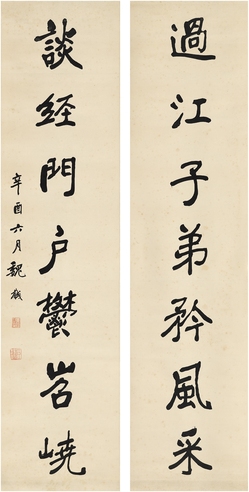 過江子弟矜風采
談經門戶鬱岧嶢
辛酉六月魏戫